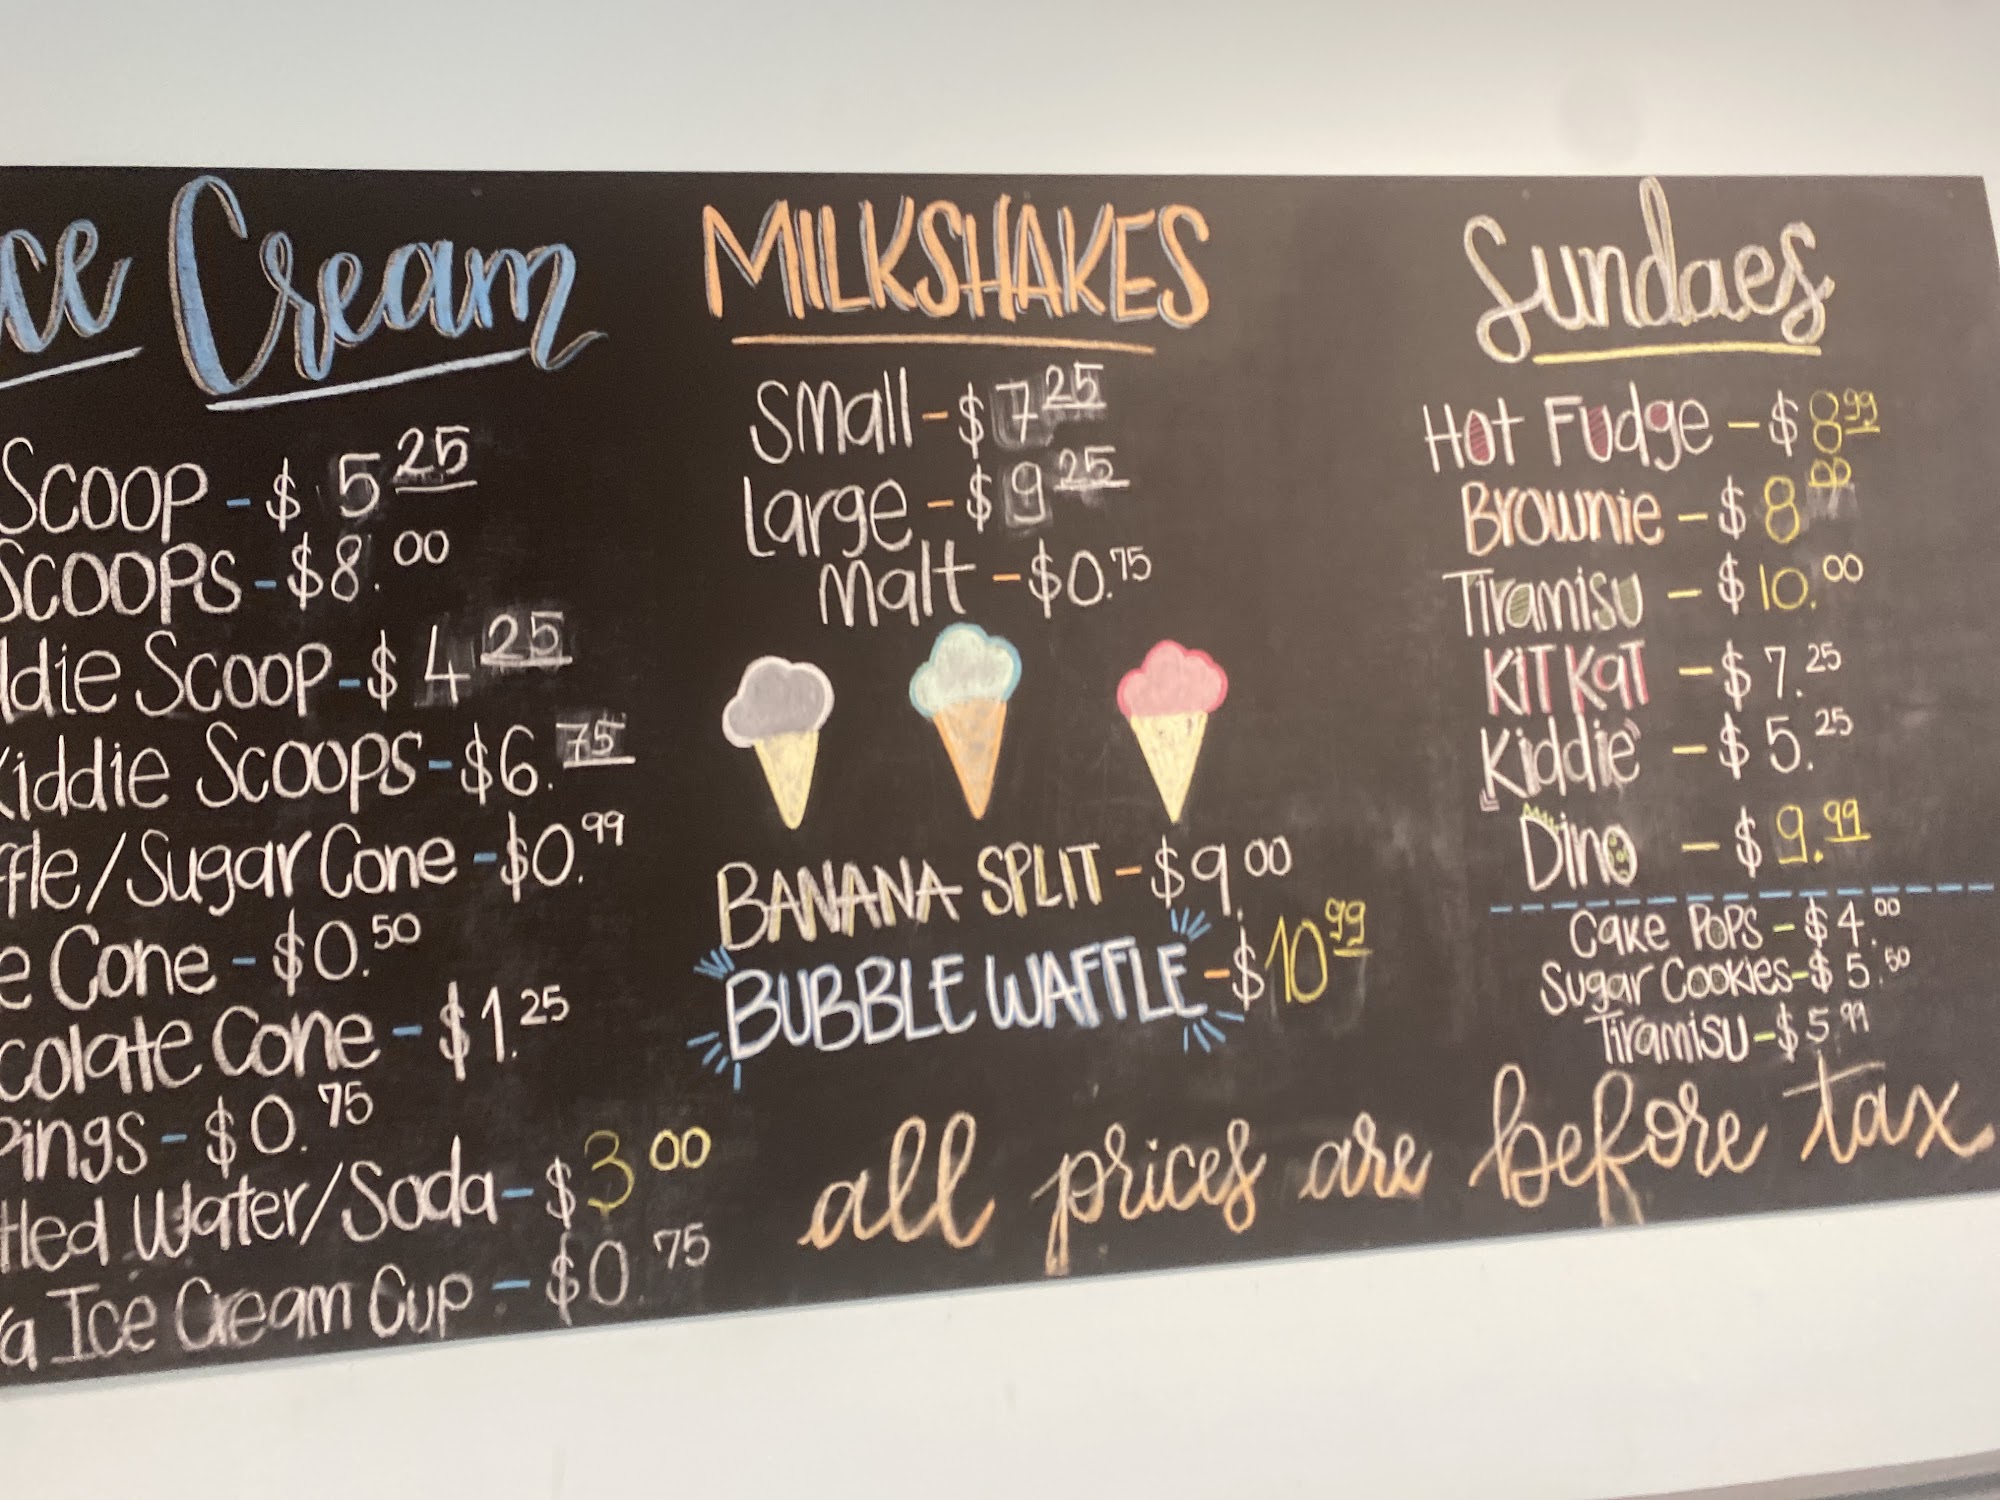 ce Cream
Scoop - $ 5 25
Scoops - $8. 00
ddie Scoop - $ 4 25
Kiddie Scoops - $6. 75
ffle/Sugar Cone - $0. 99
e Cone - $0. 50
colate Cone - $1. 25
pings - $0. 75
ttled Water/Soda - $ 3 00
ra Ice Cream Cup - $0 75
MILKSHAKES
Small - $ 7 25
Large - $ 9 25
Malt - $0. 75
BANANA SPLIT - $9. 00
BUBBLE WAFFLE - $10 99
Sundaes
Hot Fudge - $ 8 99
Brownie - $ 8 00
Tiramisu - $ 10. 00
KiT KaT - $ 7. 25
Kiddie - $ 5. 25
Dino - $ 9. 99
Cake Pops - $ 4. 00
Sugar Cookies - $ 5. 50
Tiramisu - $ 5 99
all prices are before tax